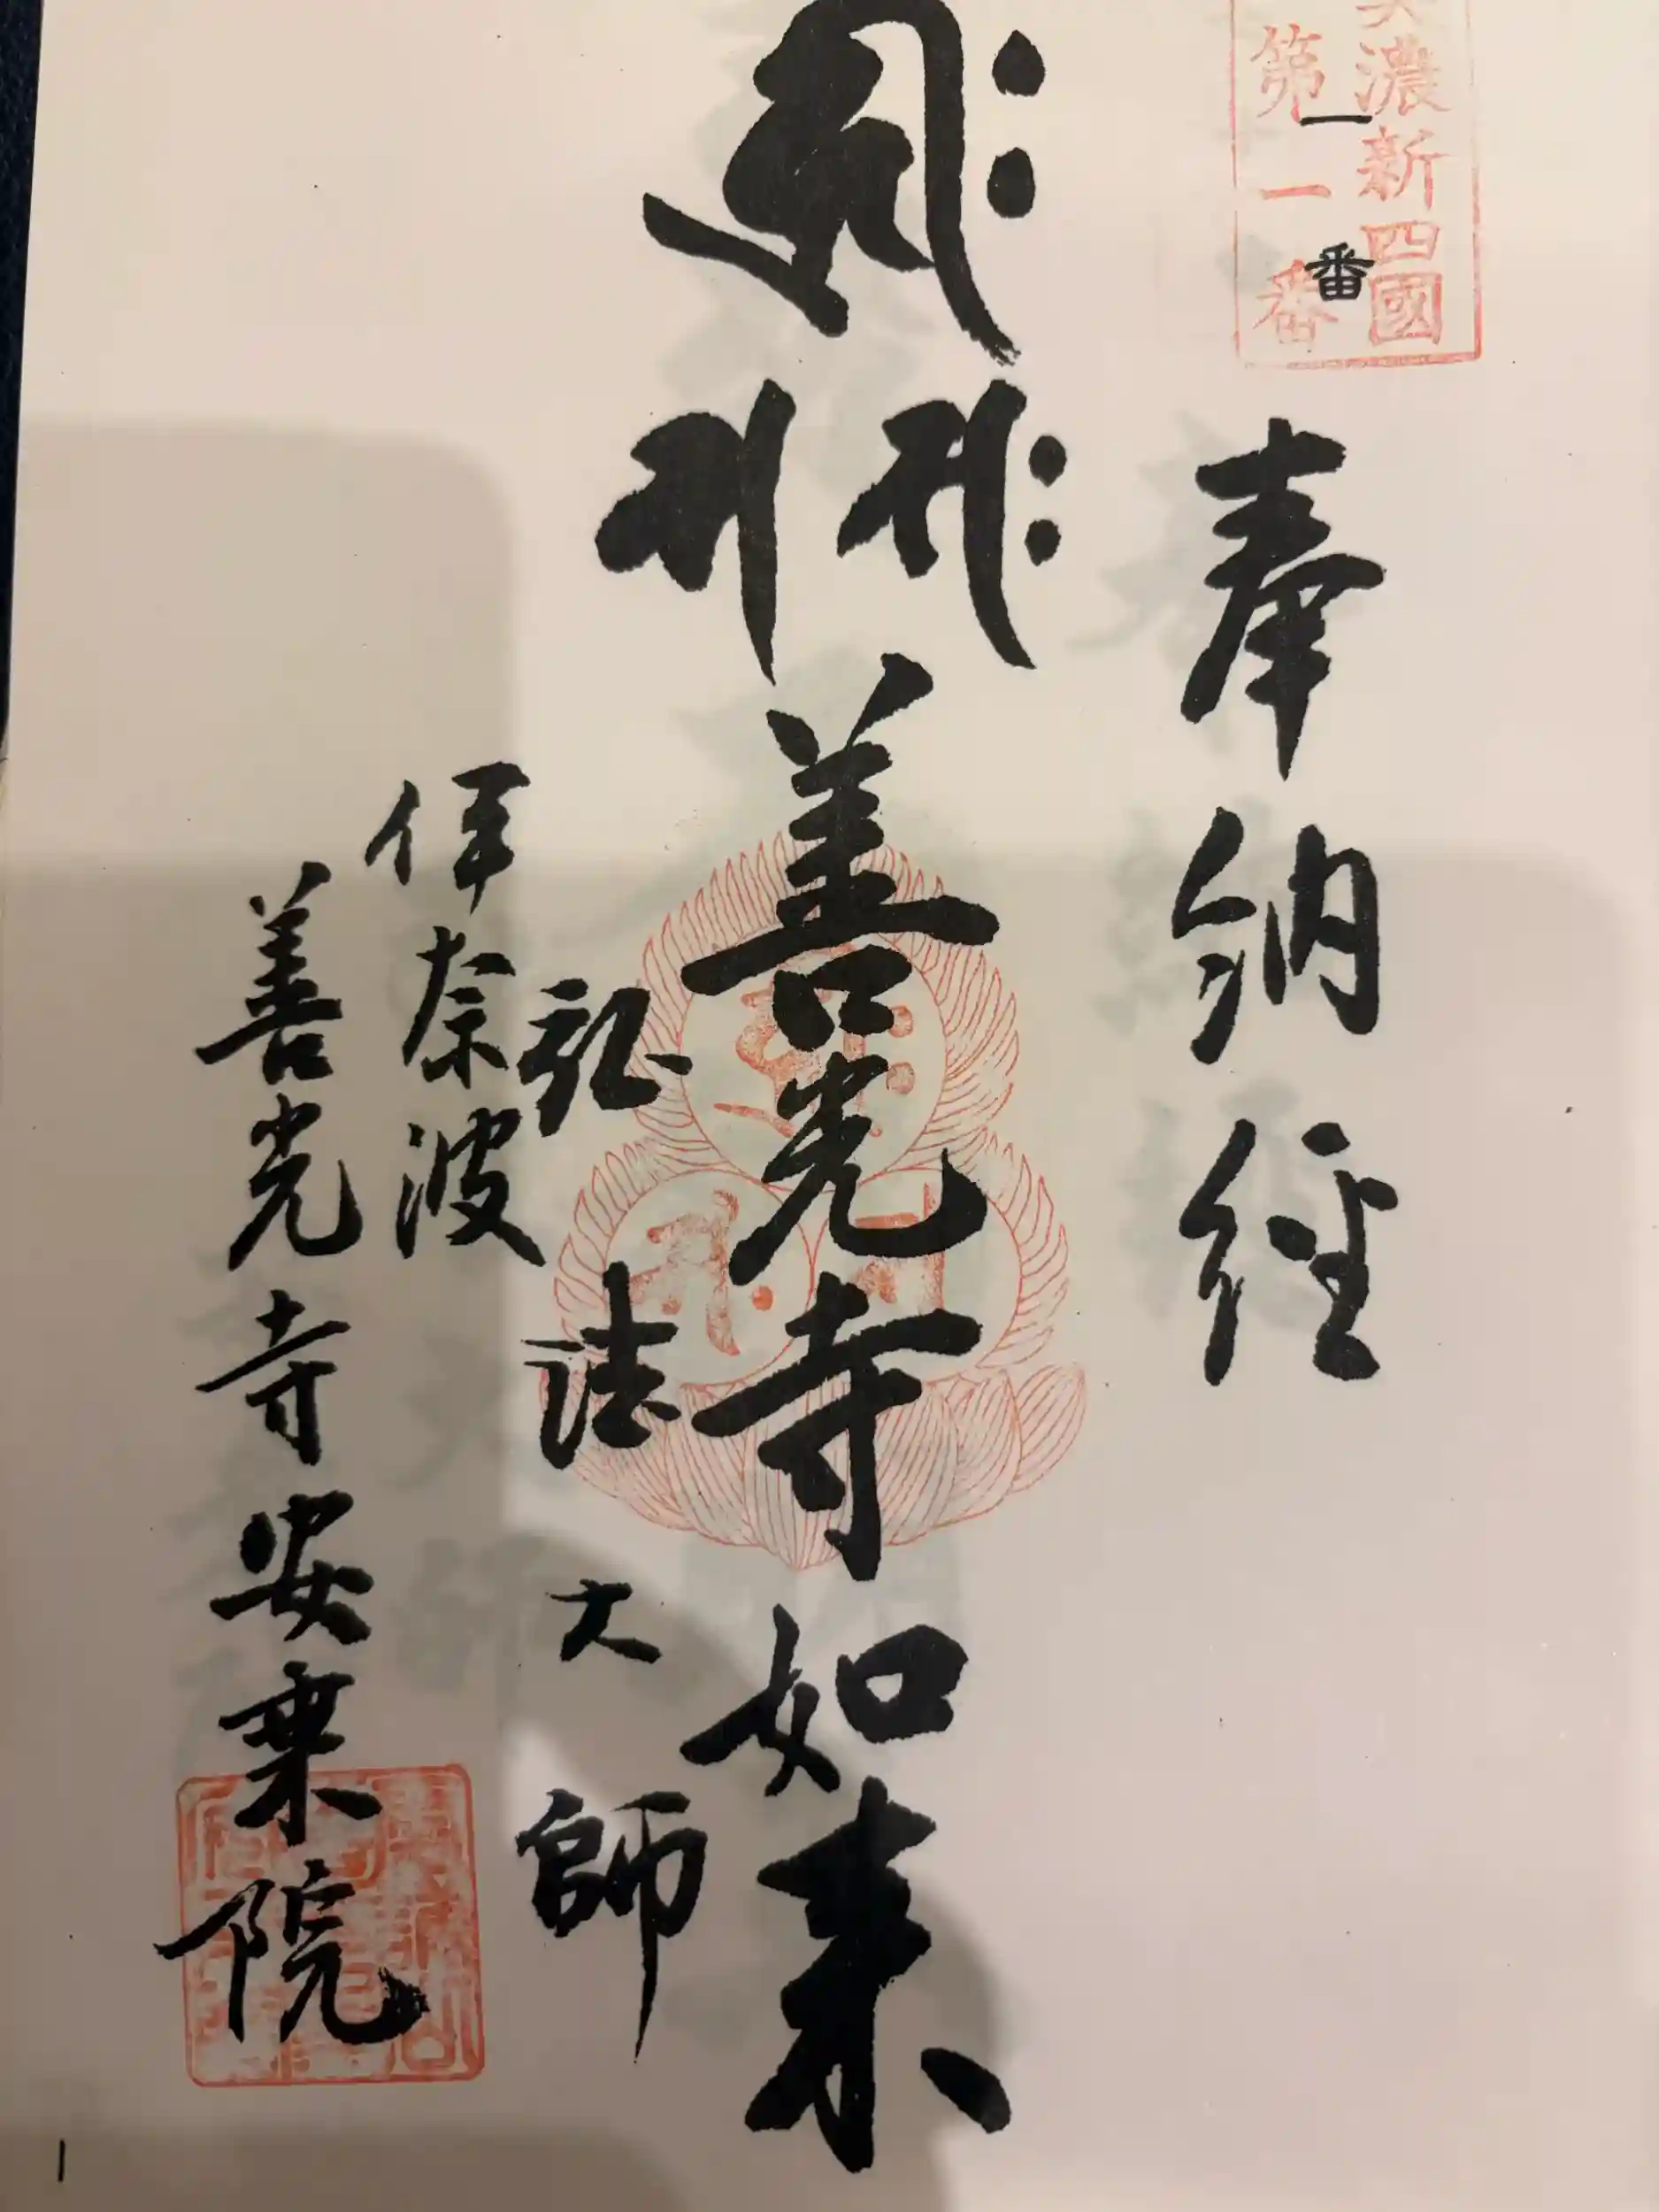 美濃新四國
第一番
一番
奉納経
善光寺如来
弘法大師
伊奈波
善光寺安乗院
1